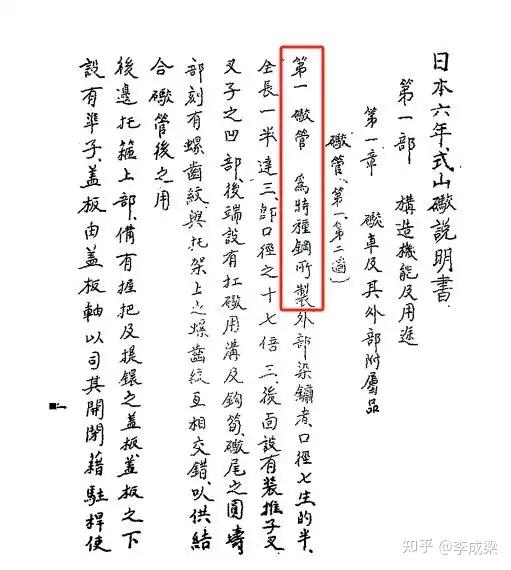 日本六年式山礮說明書
第一部 構造機能及用途
第一章 礮車及其外部附屬品
礮管(第一、第二圖)
第一 礮管 為特種鋼所製外部染鏽者、口徑七生的半、
全長一半達三、即口徑之十七倍三、後面設有裝推子叉
叉子之凹部、後端設有扛礮用溝及鈎筍、礮尾之圓壔
部刻有螺齒紋與托架上之螺齒紋互相交錯、以供結
合礮管後之用
後邊托箍上部、備有握把及提鐶之蓋板、蓋板之下
設有準子、蓋板由蓋板軸以司其開閉藉駐桿使
知乎 @李成梁